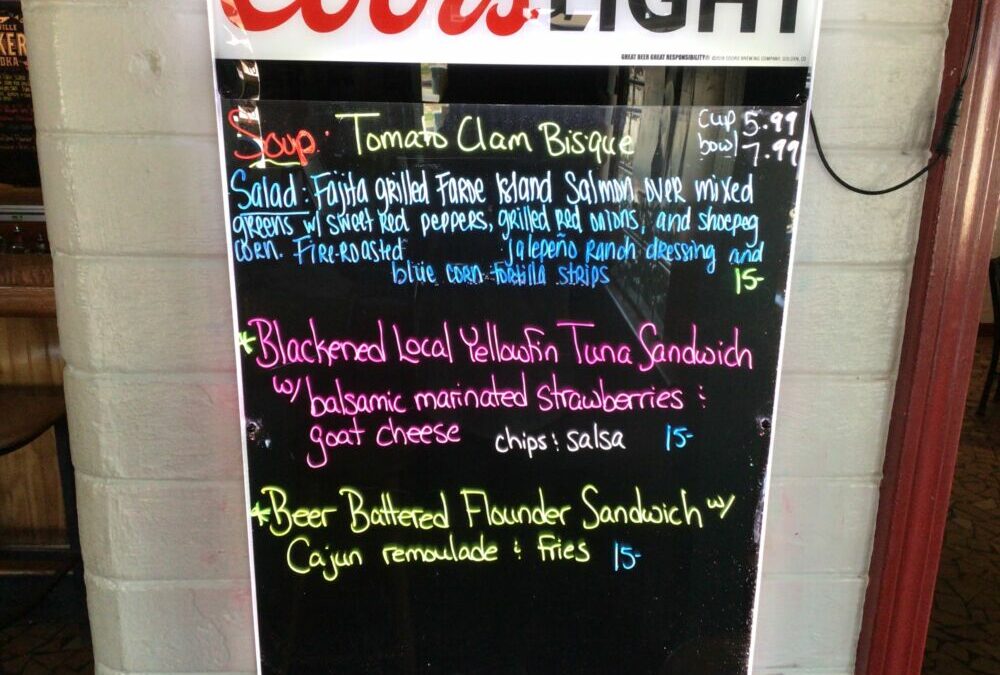 Coors LIGHT
GREAT BEER GREAT RESPONSIBILITY®
Soup: Tomato Clam Bisque cup 5.99
bowl 7.99
Salad: Fajita grilled Faroe Island Salmon over mixed
greens w/ sweet red peppers, grilled red onions, and shoepeg
corn. Fire-roasted jalepeño ranch dressing and
blue corn tortilla strips 15-
*Blackened Local Yellowfin Tuna Sandwich
w/ balsamic marinated strawberries &
goat cheese chips & salsa 15-
*Beer Battered Flounder Sandwich w/
Cajun remoulade & Fries 15-